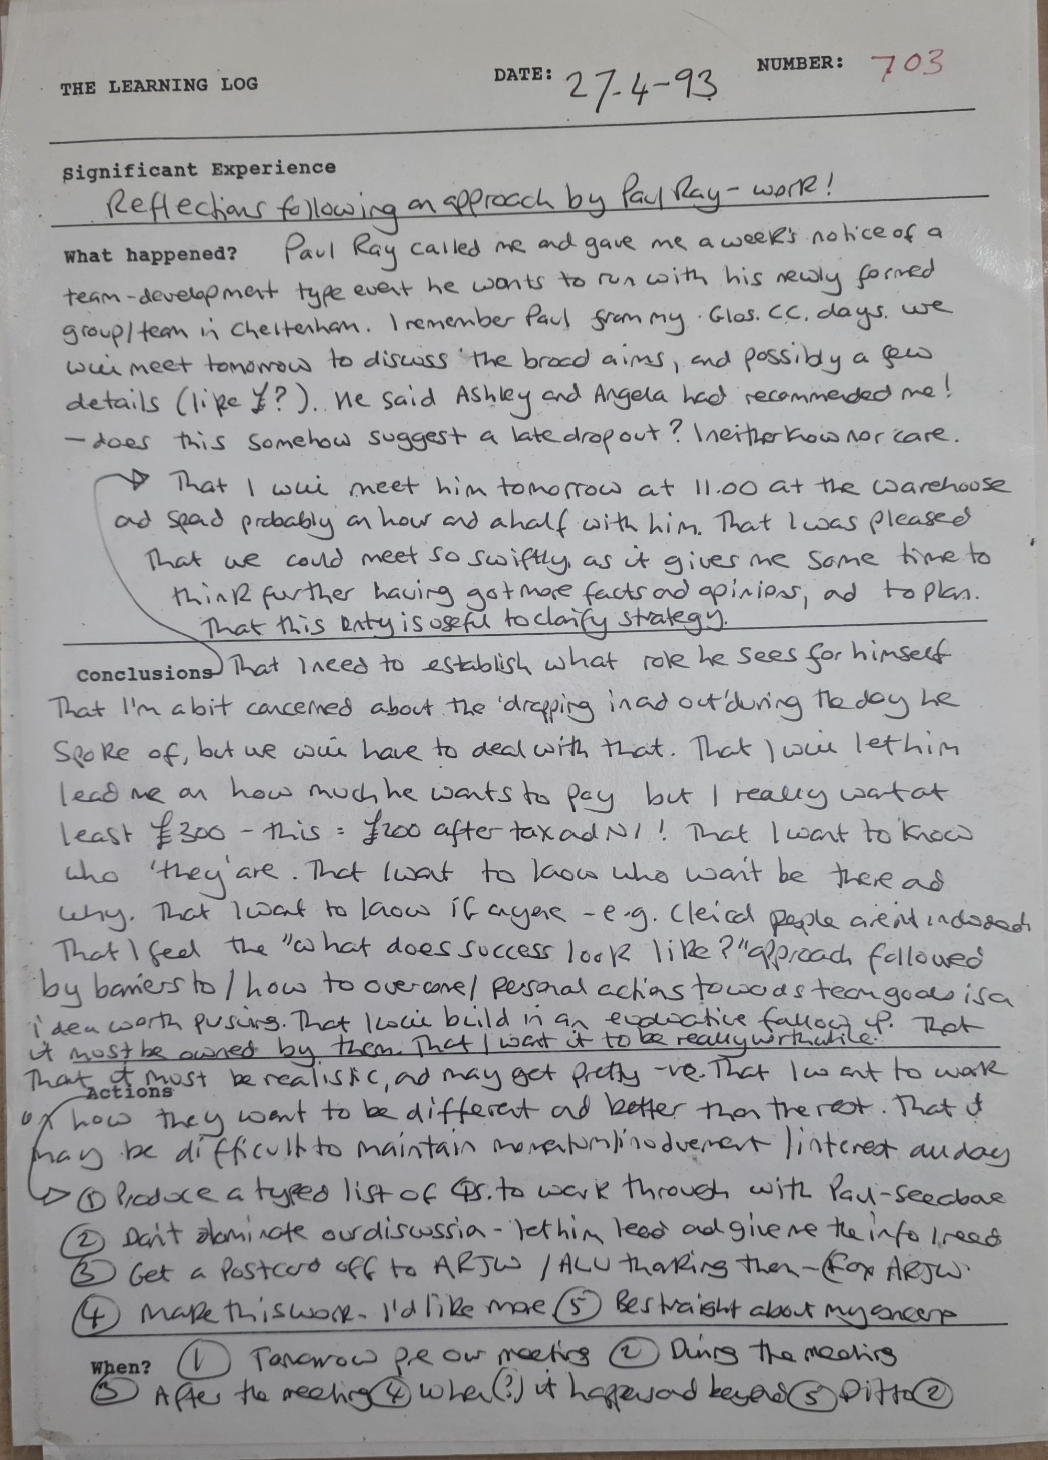 THE LEARNING LOG DATE: 27-4-93 NUMBER: 703
Significant Experience
Reflections following an approach by Paul Ray - work!
What happened? Paul Ray called me and gave me a week's notice of a
team-development type event he wants to run with his newly formed
group/team in Cheltenham. I remember Paul from my Glos. C.C. days. We
will meet tomorrow to discuss the broad aims, and possibly a few
details (like £?). He said Ashley and Angela had recommended me!
- does this somehow suggest a late drop out? I neither know nor care.
That I will meet him tomorrow at 11.00 at the warehouse
and spend probably an hour and a half with him. That I was pleased
that we could meet so swiftly, as it gives me some time to
think further having got more facts and opinions, and to plan.
That this entry is useful to clarify strategy.
Conclusions That I need to establish what role he sees for himself
That I'm a bit concerned about the 'dropping in and out' during the day he
spoke of, but we will have to deal with that. That I will let him
lead me on how much he wants to pay but I really want at
least £300 - this = £200 after tax and NI! That I want to know
who 'they' are. That I want to know who won't be there and
why. That I want to know if anyone - e.g. clerical people aren't included
That I feel the "what does success look like?" approach followed
by barriers to / how to overcome / personal actions towards team goals is a
idea worth pursuing. That I will build in an evaluative follow up. That
it must be owned by them. That I want it to be really worthwhile.
That it must be realistic, and may get pretty -ve. That I want to work
Actions
on how they want to be different and better than the rest. That it
may be difficult to maintain momentum/involvement/interest all day
① Produce a typed list of Qs. to work through with Paul - see above
② Don't dominate our discussion - let him lead and give me the info I need
③ Get a postcard off to ARJW / ALU thanking them - (Fox ARJW
④ Make this work - I'd like more ⑤ Be straight about my concerns
When? ① Tomorrow pre our meeting ② During the meeting
③ After the meeting ④ When(?) it happens and beyond ⑤ Ditto ②